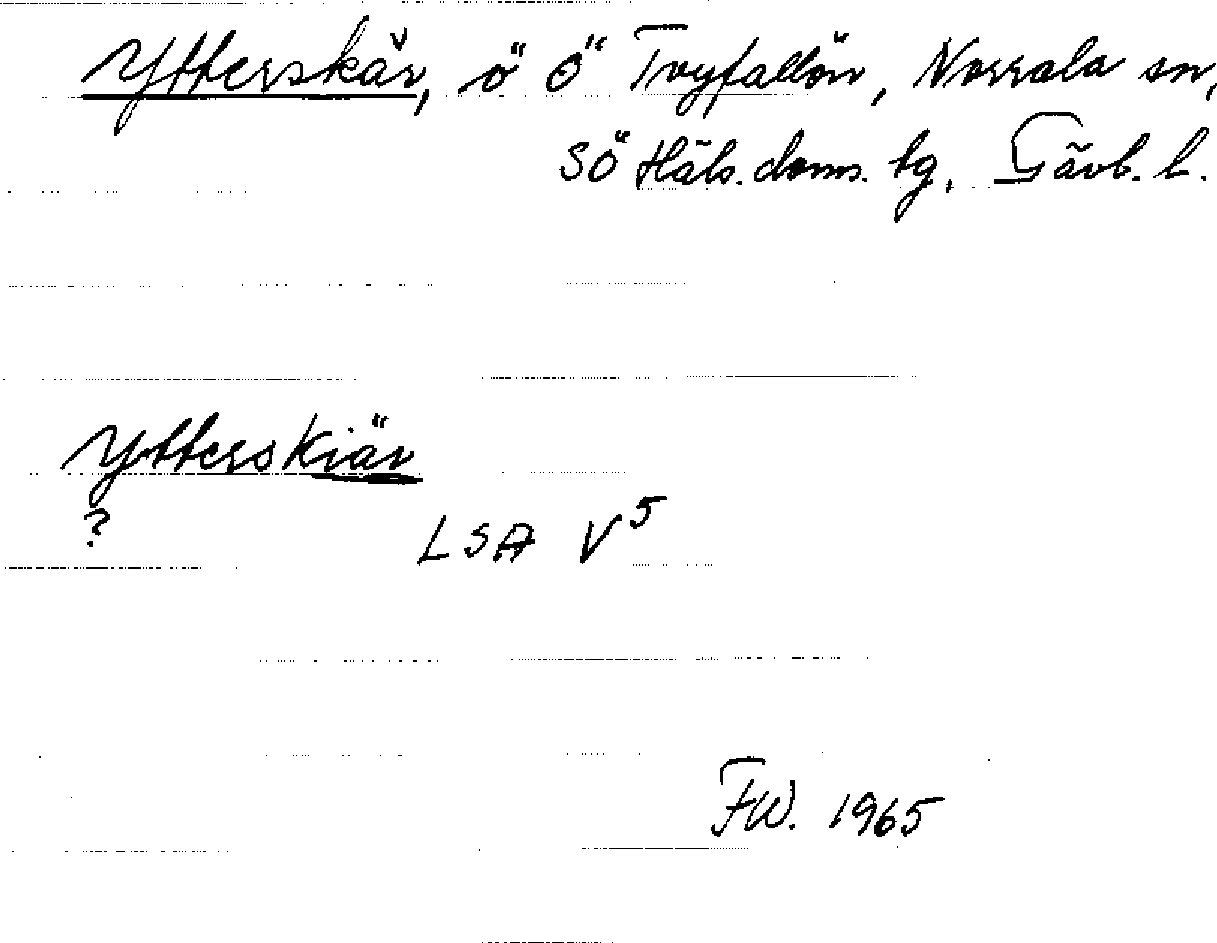 Ytterskär, ö Ö Tryfallön, Norrala sn,
SÖ Häls. doms. tg, Gävb. l.
YttersKiär
?
LSA V5
FW. 1965